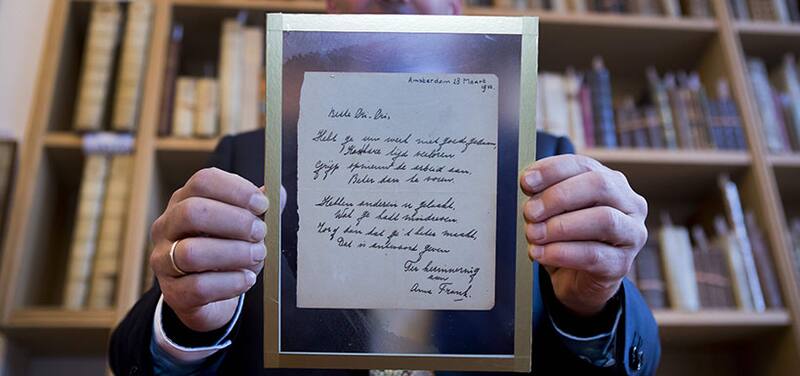 Amsterdam 28 Maart
1942.
Beste Cri-Cri,
Hebt ge uw werk niet goed gedaan,
Kostbare tijd verloren
Grijp opnieuw de arbeid aan,
Beter dan te voren.
Hebben anderen u gelaakt,
Wat ge hadt misdreven
Zorg dan dat ge 't beter maakt,
Dat is antwoord geven
Ter herinnering
aan
Anne Frank.